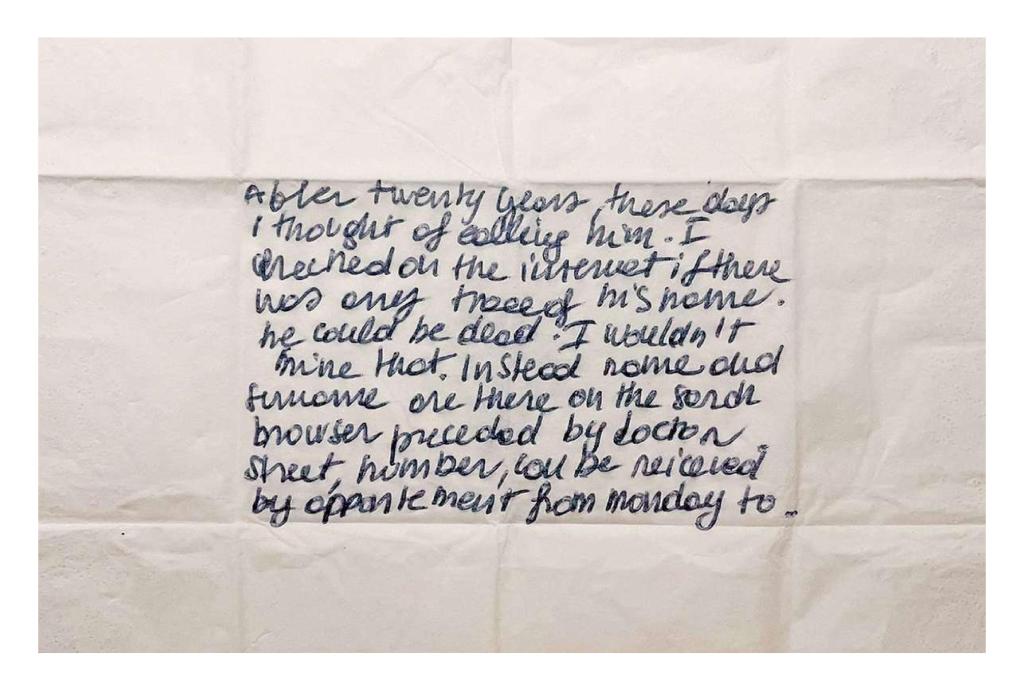 After twenty years, these days
I thought of calling him. I
checked on the internet if there
was any trace of his name.
he could be dead. I wouldn't
mine that. Instead name and
surname are there on the serch
browser preceded by doctor.
Street, number, can be reiceved
by appontement from monday to ..